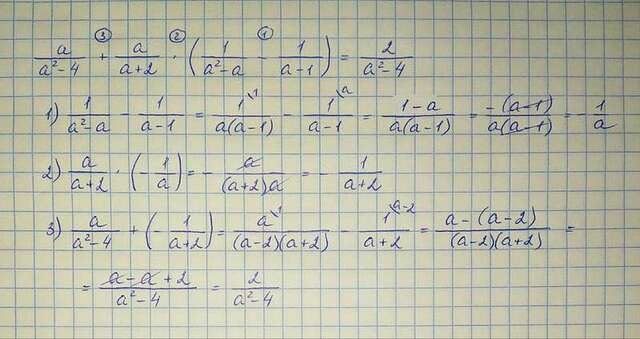 ③ ② ①
a/(a²-4) + a/(a+2) · (1/(a²-a) - 1/(a-1)) = 2/(a²-4)
1) 1/(a²-a) - 1/(a-1) = 1\1/(a(a-1)) - 1\a/(a-1) = (1-a)/(a(a-1)) = -(a-1)/(a(a-1)) = -1/a
2) a/(a+2) · (-1/a) = - a/((a+2)a) = - 1/(a+2)
3) a/(a²-4) + (-1/(a+2)) = a\1/((a-2)(a+2)) - 1\a-2/(a+2) = (a-(a-2))/((a-2)(a+2)) =
= (a-a+2)/(a²-4) = 2/(a²-4)